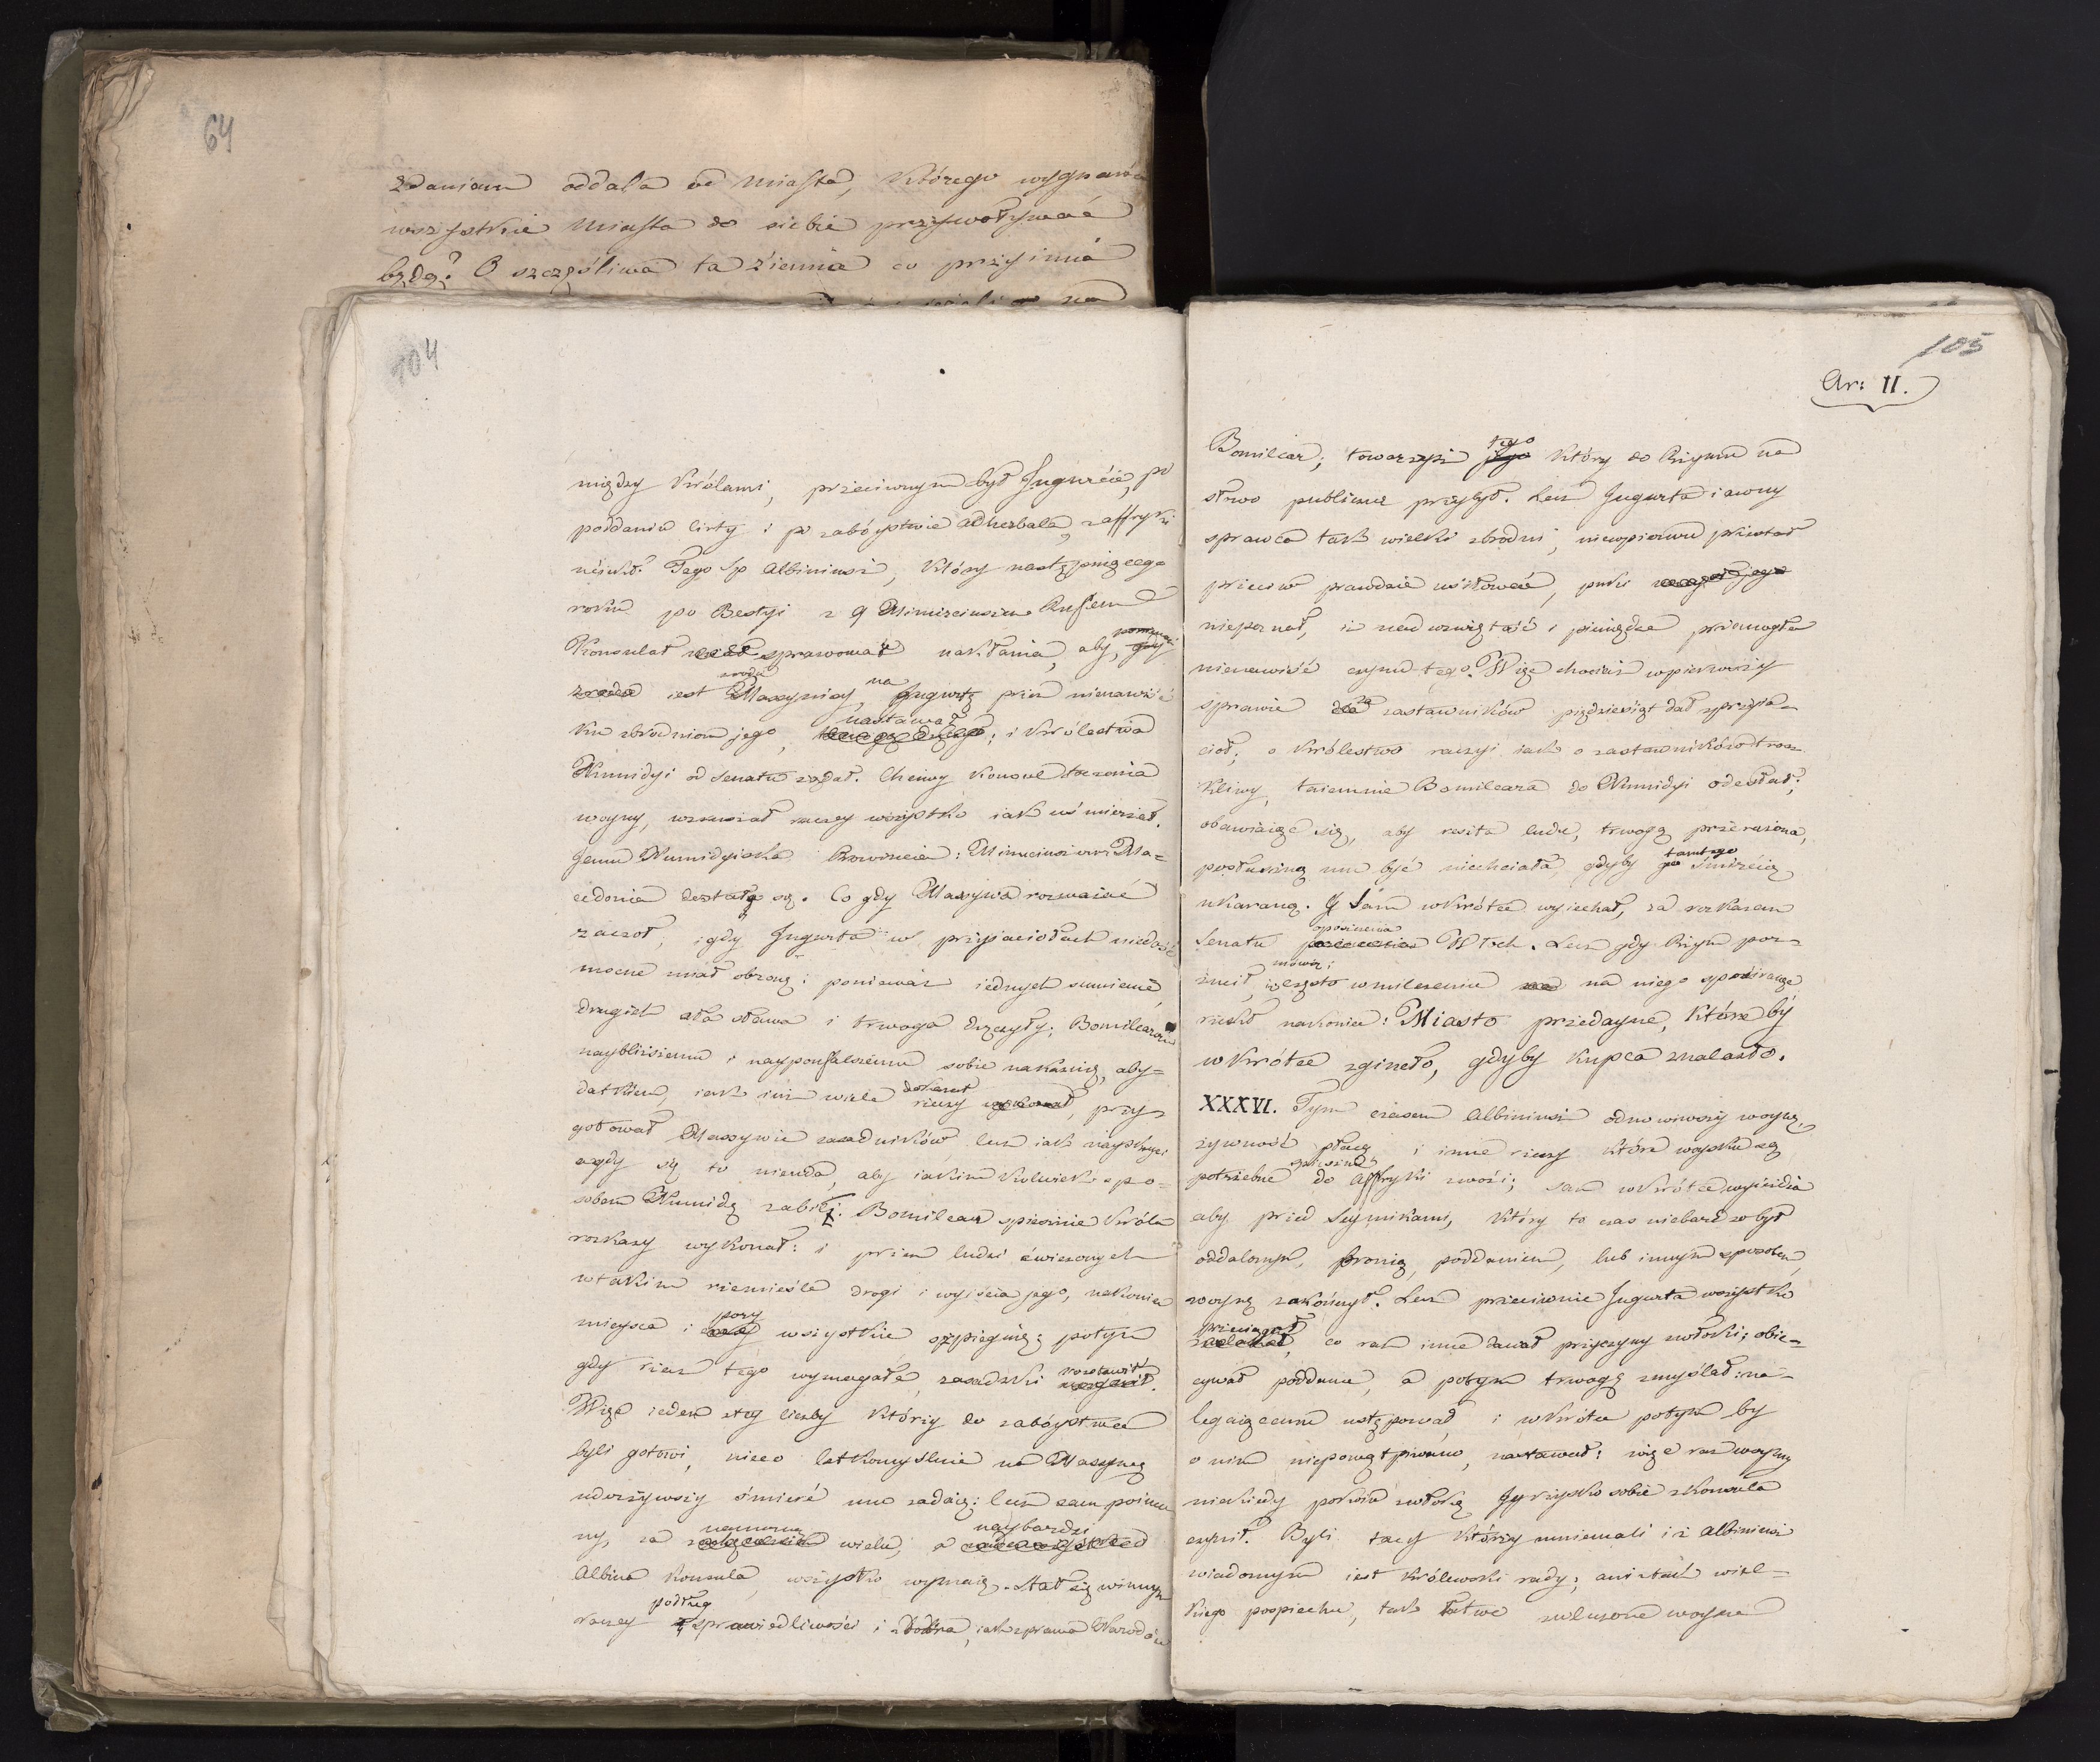 64
zdaniem oddala od miasta, którego wygnańca
wszystkie miasta do siebie przyswoływać
będą? O szczęśliwa ta ziemia co przyimie
104
między Królami, przeciwnym był Jugurcie, po
poddaniu Cirty i po zabóystwie Adherbala, z affryki
uciekł. Tego Sp Albiniusz, który następuiącego
roku po Bestyi z Q Minuciuszem Ruffem
Konsulat sprawował nakłania, aby, ponieważ gdy
rodu iest Massynissy, na Jugurtę przez nienawiść
ku zbrodniom jego, nastawał; i Królestwa
Numidyi od Senatu żądał. Chciwy Konsul toczenia
woyny, wzruszał raczey wszystko iak uśmierzał.
Jemu Numidyiska Prowincia: Minuciuszowi Ma=
cedonia dostała się. Co gdy Massywa rozważać
zaczoł, i gdy Jugurta w przyjaciołach niedość
mocne miał obronę: ponieważ iednych sumienie,
drugich zła sława i trwoga dręczyły; Bomilcarowi
naybliższemu i naypoufalszemu sobie nakazuię, aby=
datkiem, iak iuż wiele rzeczy dokazał, przy=
gotował Massywie zasadników lecz iak nayskryci
a gdy się to nieuda, aby iakim kolwiek spo=
sobem Numidę zabili. Bomilcar spiesznie Króla
rozkazy wykonał: i przez ludzi ćwiczonych
w takim rzemieśle drogi i wyiścia jego, nakoniec
mieysca i pory wszystkie szpieguię; potym
gdy rzecz tego wymagała, zasadzki rozstawił.
Więc ieden z tey liczby którzy do zabóystwa
byli gotowi, nieco letkomyślnie na Massywę
uderzywszy śmierć mu zadaię: lecz sam poima
ny, za namową wielu, a naybardzi
Albina Konsula, wszystko wyznaię. Stał się winnym
raczey podług sprawiedliwości i dobra, iak prawa Narodów
105
Ar: II.
Bomilcar, towarzysz tego który do Rzymu na
słowo publiczne przybył. Lecz Jugurta iawny
sprawca tak wielki zbrodni, niewpierwu przestał
przeciw prawdzie usiłować, puki
niepoznał, iż nad wziętość i pieniądze przemogła
nienawiść czynu tego. Więc chociaż w pierwszy
sprawie za zastawników pięćdziesiąt dał z przyja=
cioł; o królestwo raczyi iak o zastawników trosz
kliwy, taiemnie Bomilcara do Numidyi odesłał;
obawiaiąc się, aby reszta ludu, trwogą przerażona,
posłuszną mu być niechciała, gdyby tamtego śmiercią
ukarano. J sam wkrótce wyiechał, za rozkazem
Senatu opuszczenia Włoch. Lecz gdy Rzym porz=
zucił, mówią; iż często w milczeniu na niego spoziraiąc
rzekł nakoniec: Miasto przedayne, które by
wkrótce zgineło, gdyby kupca znalazło.
XXXVI. Tym czasem Albiniusz odnowiwszy woynę,
żywność płacę i inne rzeczy które woysku są
potrzebne do Affryki zwozi; sam wkrótce wyieżdża
aby przed Seymikami, który to czas niebardzo był
oddalonym, bronią, poddaniem, lub innym sposobem,
woynę zakończył. Lecz przeciwnie Jugurta wszystko
przeciągał, co raz inne dawał przyczyny zwłoki; obie=
cywał poddanie, a potym trwogę zmyślał: na=
legaiącemu ustępował, i wkrótce potym by
o nim niepowątpiwano, nastawał: więc raz woyny
niekiedy pokoiu zwłoką Jgrzysko sobie z Konsula
czynił. Byli tacy którzy mniemali iż Albiniusz
wiadomym iest królewski rady; ani z tak wiel=
kiego pospiechu, tak łatwo zwleczone woynę